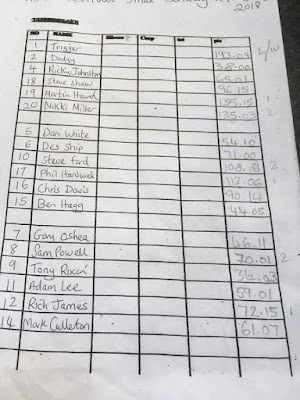 2018
TANNERSLAKE
NO NAME Silvers Carp int pts
1 Trigger 193.09 L/W
2 Doddy 38.00
4 Ricky Johnston 65.01
18 Steve Shaw 96.15
19 Martin Heard 155.15 1
20 Nikki Miller 135.03 2
5 Dan White 54.10
6 Des Ship 71.00
10 Steve Ford 108.8 2
17 Phil Hardwick 112.06 1
16 Chris Davis 90.14
15 Ben Hagg 44.05
7 Gary Oshea 46.11
8 Sam Powell 70.01 2
9 Tony Rixon 34.03
11 Adam Lee 59.01
12 Rich James 72.15 1
14 Mark Culleton 61.07